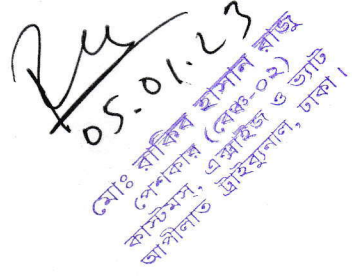 05.01.23
মোঃ রাকিব হাসান রাজু
পেশকার (বেঞ্চ-০২)
কাস্টমস, এক্সাইজ ও ভ্যাট
আপীলাত ট্রাইব্যুনাল, ঢাকা।